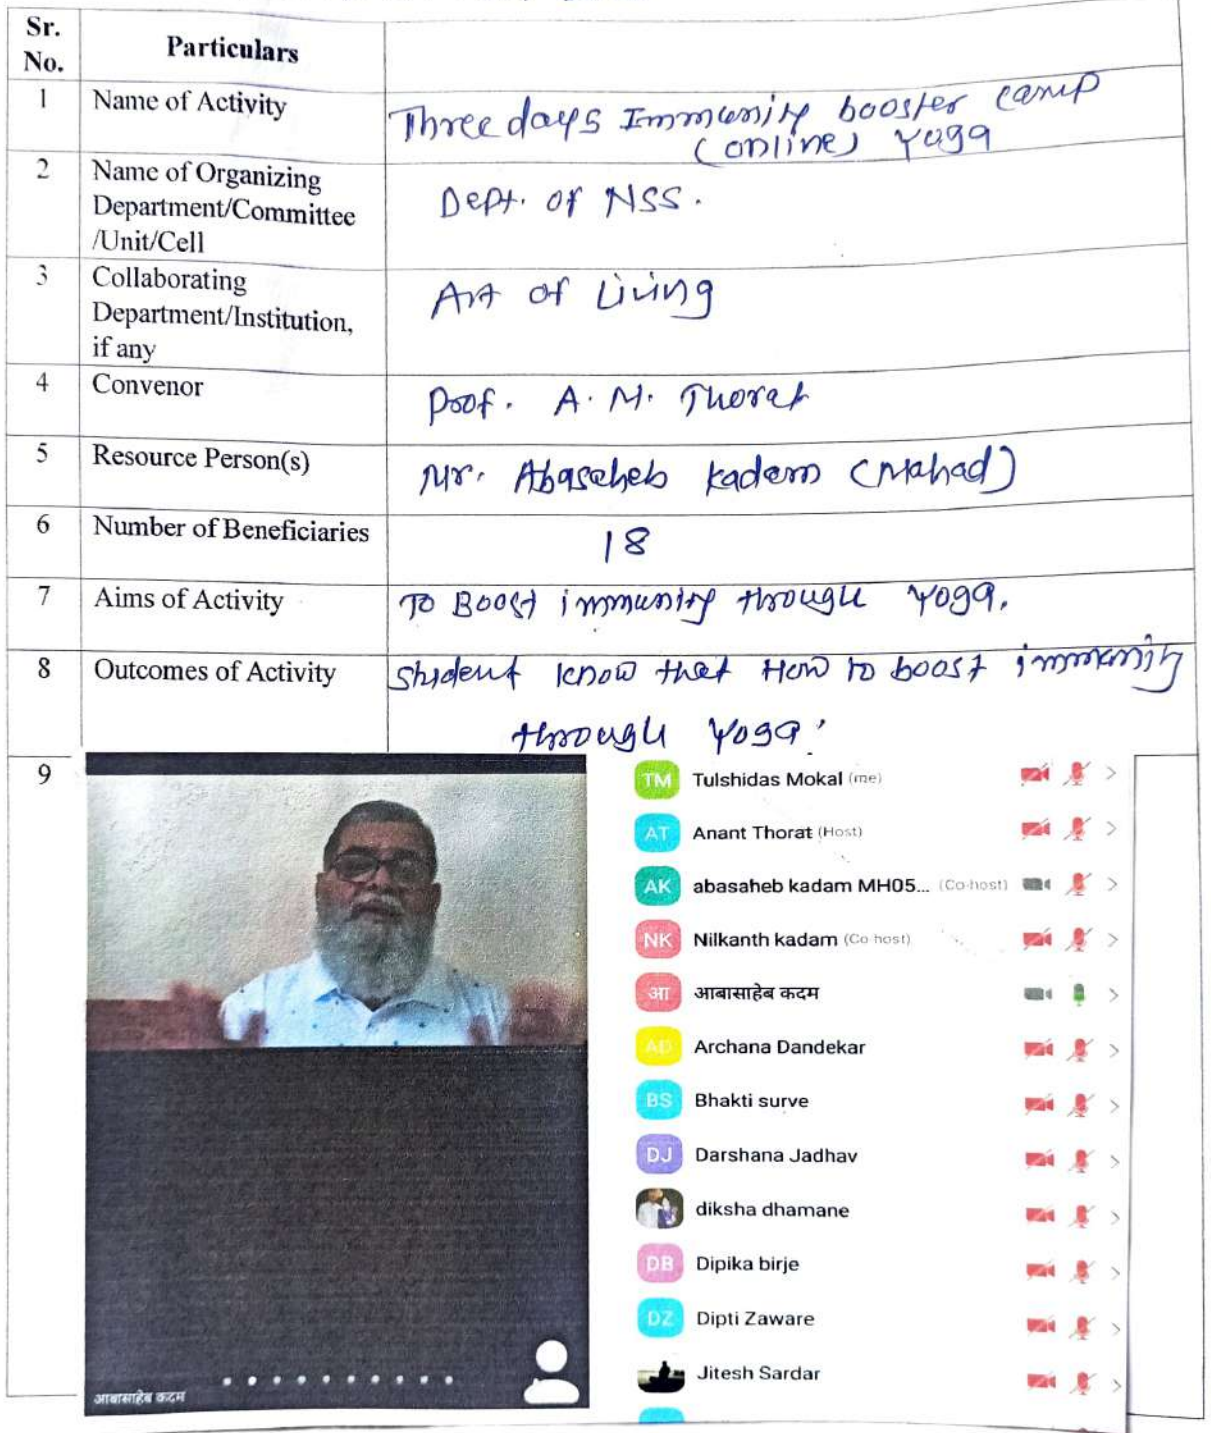 Sr.
No.
Particulars
1
Name of Activity
Three days Immunity booster camp
(online) Yoga
2
Name of Organizing
Department/Committee
/Unit/Cell
Dept. of NSS.
3
Collaborating
Department/Institution,
if any
Art of Living
4
Convenor
Prof. A. M. Thorat
5
Resource Person(s)
Mr. Abasaheb Kadam (Mahad)
6
Number of Beneficiaries
18
7
Aims of Activity
To Boost immunity through Yoga.
8
Outcomes of Activity
Student know that How to boost immunity
through Yoga.
9
TM Tulshidas Mokal (me)
AT Anant Thorat (Host)
AK abasaheb kadam MH05... (Co-host)
NK Nilkanth kadam (Co host)
आ आबासाहेब कदम
AD Archana Dandekar
BS Bhakti surve
DJ Darshana Jadhav
diksha dhamane
DB Dipika birje
DZ Dipti Zaware
Jitesh Sardar
आबासाहेब कदम